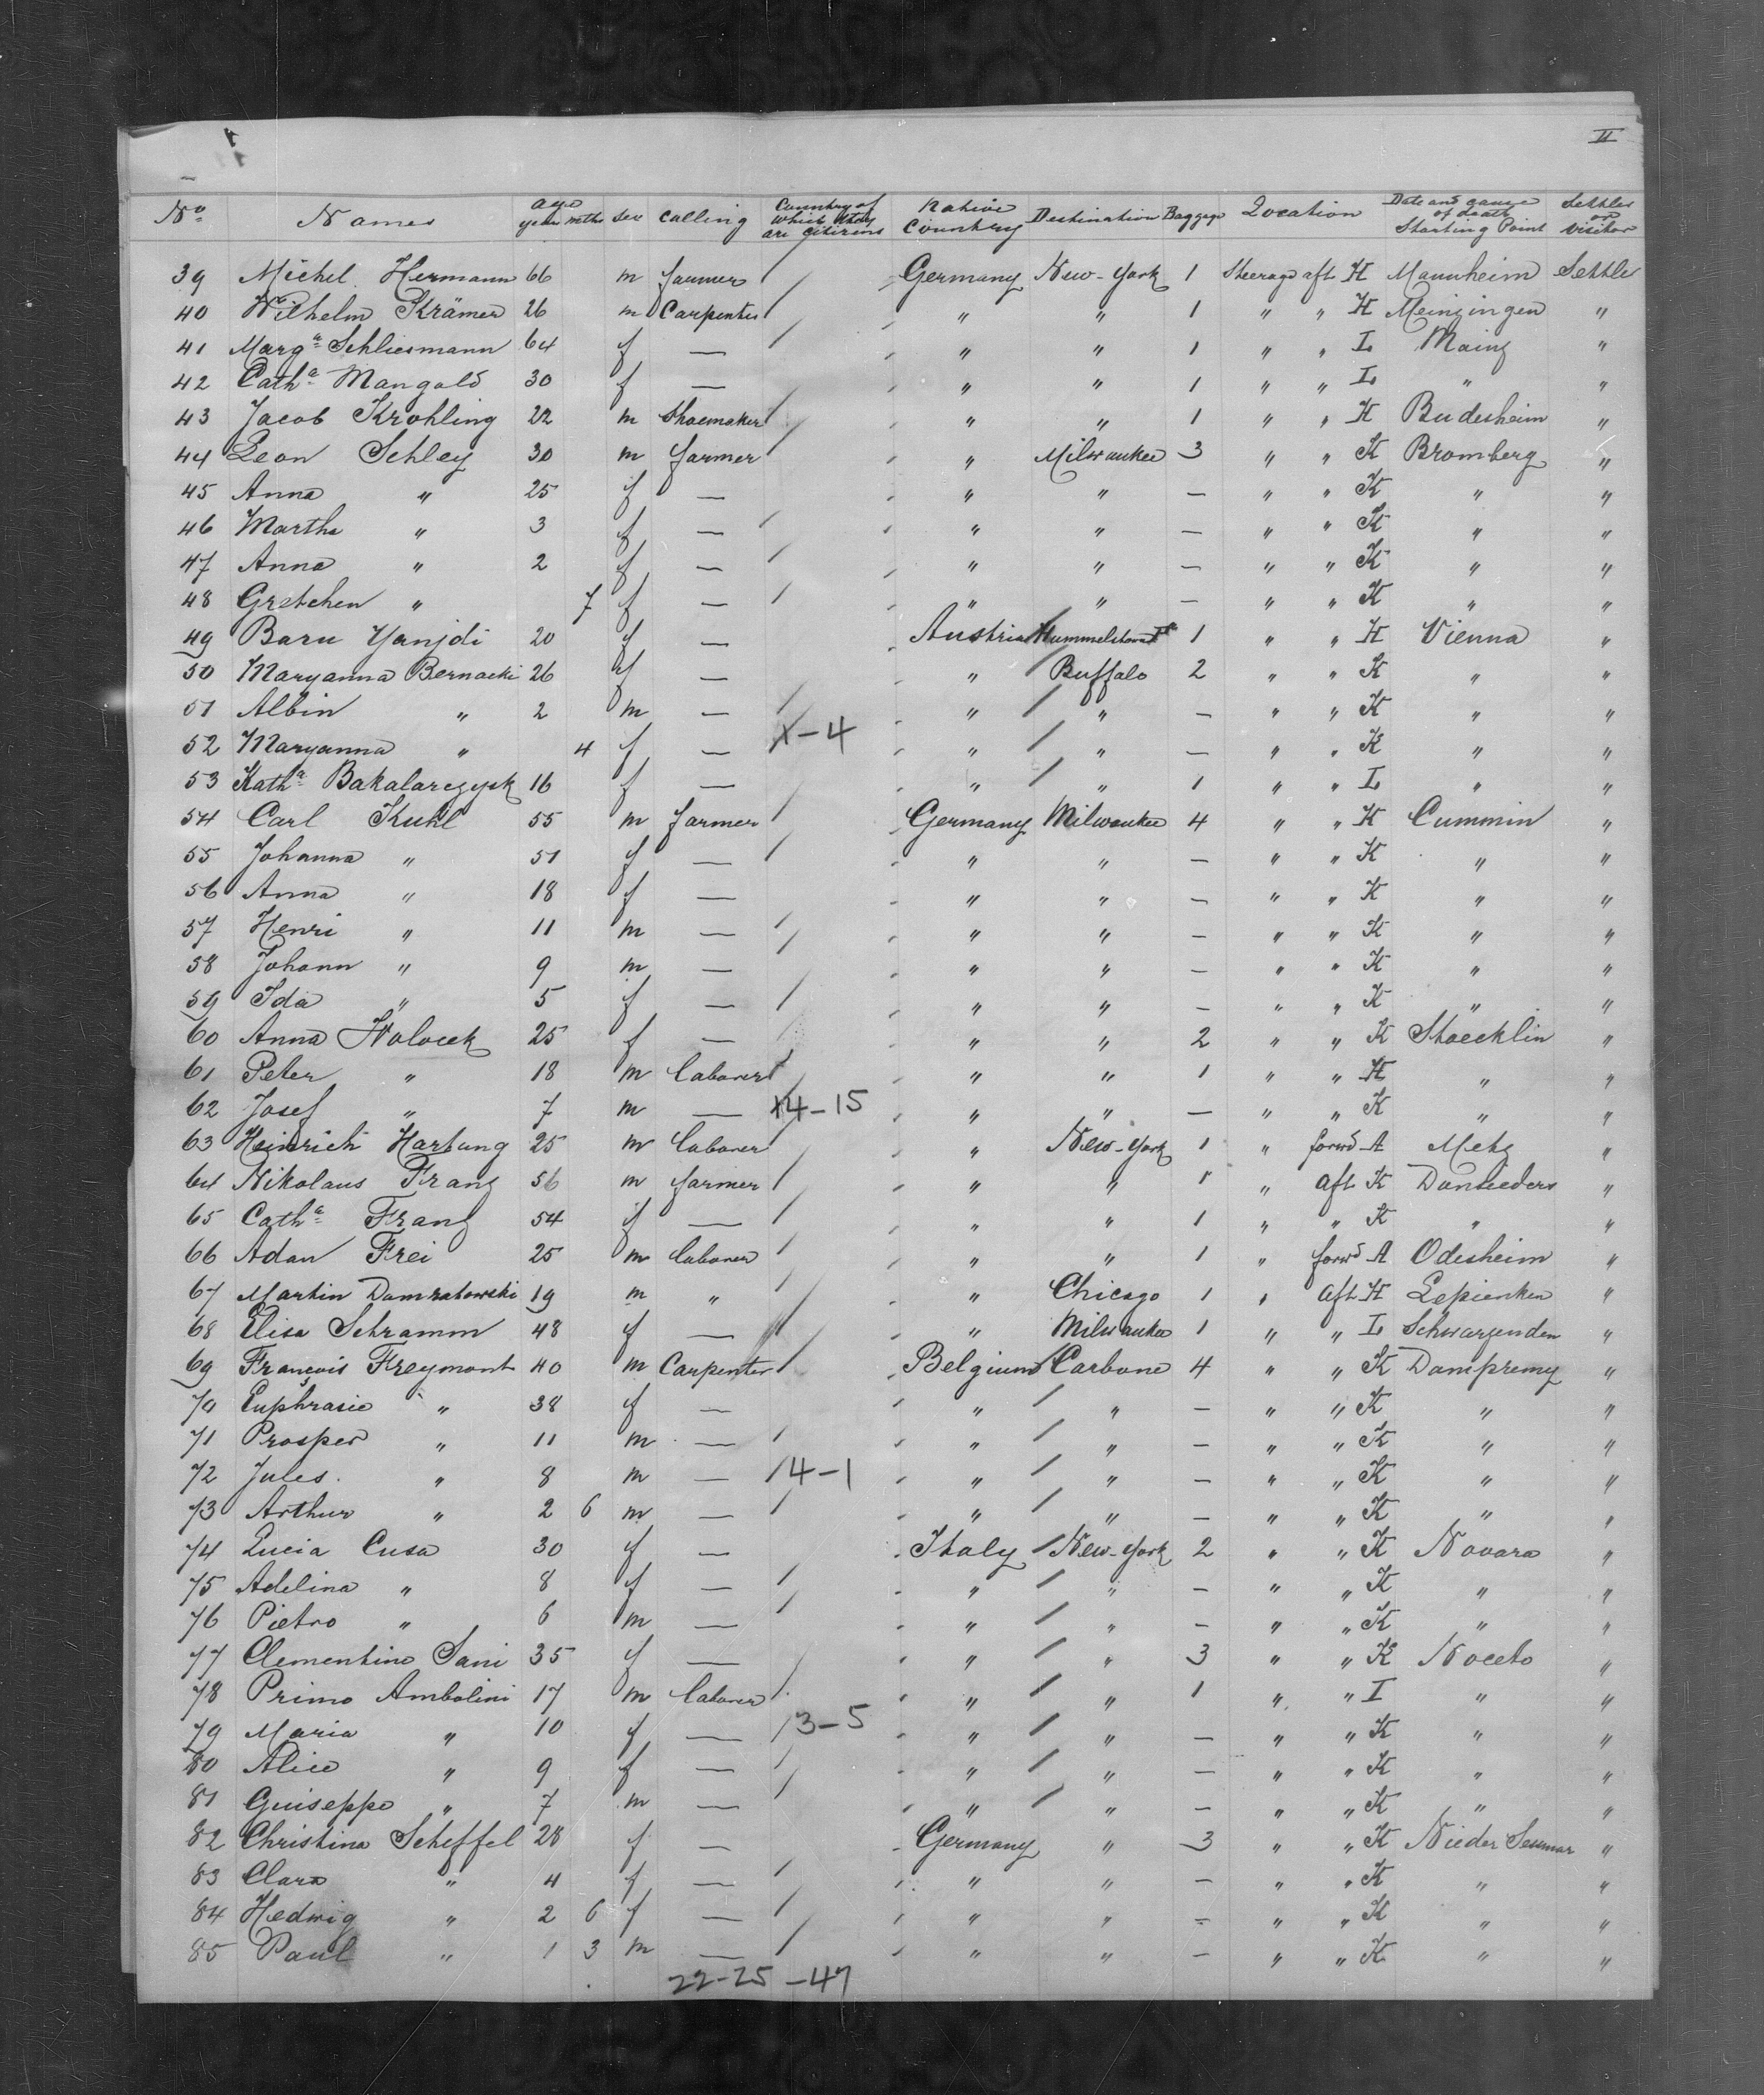 II
No Names age years mths sex calling Country of which they are citizens Native Country Destination Baggage Location Date and cause of death Starting Point Settler or visitor
39 Michel Hermann 66 m farmer Germany New-York 1 Steerage aft H Mannheim Settler
40 Wilhelm Krämer 26 m Carpenter " " 1 " " H Meinzingen "
41 Marga Schliesmann 64 f — " " 1 " " L Mainz "
42 Catha Mangold 30 f — " " 1 " " L " "
43 Jacob Krohling 22 m Shoemaker " " 1 " " H Budesheim "
44 Leon Schley 30 m farmer " Milwaukee 3 " " K Bromberg "
45 Anna " 25 f — " " — " " K " "
46 Martha " 3 f — " " — " " K " "
47 Anna " 2 f — " " — " " K " "
48 Gretchen " 7 f — " " — " " K " "
49 Baru Yanjdi 20 f — Austria Hummelstown Pa 1 " " H Vienna "
50 Maryanna Bernacki 26 f — " Buffalo 2 " " K " "
51 Albin " 2 m — " " — " " K " "
52 Maryanna " 4 f — X-4 " " — " " K " "
53 Katha Bakalarczysk 16 f — " " 1 " " L " "
54 Carl Kuhl 55 m farmer Germany Milwaukee 4 " " K Cummin "
55 Johanna " 51 f — " " — " " K " "
56 Anna " 18 f — " " — " " K " "
57 Henri " 11 m — " " — " " K " "
58 Johann " 9 m — " " — " " K " "
59 Ida " 5 f — " " — " " K " "
60 Anna Holocek 25 f — " " 2 " " K Stoecklin "
61 Peter " 18 m laborer " " 1 " " H " "
62 Josef " 7 m — X4-15 " " — " " K " "
63 Heinrich Hartung 25 m laborer " New-York 1 " forwd A Metz "
64 Nikolaus Franz 56 m farmer " " 1 " aft K Donsieders "
65 Catha Franz 54 f — " " 1 " " K " "
66 Adan Frei 25 m laborer " " 1 " forwd A Odesheim "
67 Martin Domratowski 19 m " " Chicago 1 " aft H Lepienken "
68 Elisa Schramm 48 f — " Milwaukee 1 " " L Schwarzenden "
69 François Freymont 40 m Carpenter Belgium Carbone 4 " " K Dampremy "
70 Euphrasie " 38 f — " " — " " K " "
71 Prosper " 11 m — " " — " " K " "
72 Jules. " 8 m — 4-1 " " — " " K " "
73 Arthur " 2 6 m — " " — " " K " "
74 Lucia Cusa 30 f — Italy New-York 2 " " K Novara "
75 Adelina " 8 f — " " — " " K " "
76 Pietro " 6 m — " " — " " K " "
77 Clementine Sani 35 f — " " 3 " " K Noceto "
78 Primo Ambolini 17 m laborer " " 1 " " I " "
79 Maria " 10 f — 3-5 " " — " " K " "
80 Alice " 9 f — " " — " " K " "
81 Guiseppe " 7 m — " " — " " K " "
82 Christina Scheffel 28 f — Germany " 3 " " K Nieder "
83 Clara " 4 f — " " — " " K " "
84 Hedwig " 2 6 f — " " — " " K " "
85 Paul " 1 3 m — " " — " " K " "
22-25-47